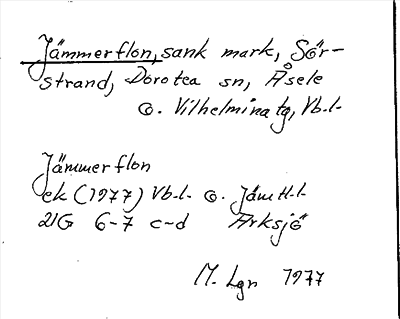 Jämmerflon, sank mark, Sör-
strand, Dorotea sn, Åsele
o. Vilhelmina tg, Vb.l.
Jämmerflon
ek (1977) Vb.l. o. Jämtl.l.
21G 6-7 c-d Arksjö
M. Lgn 1977